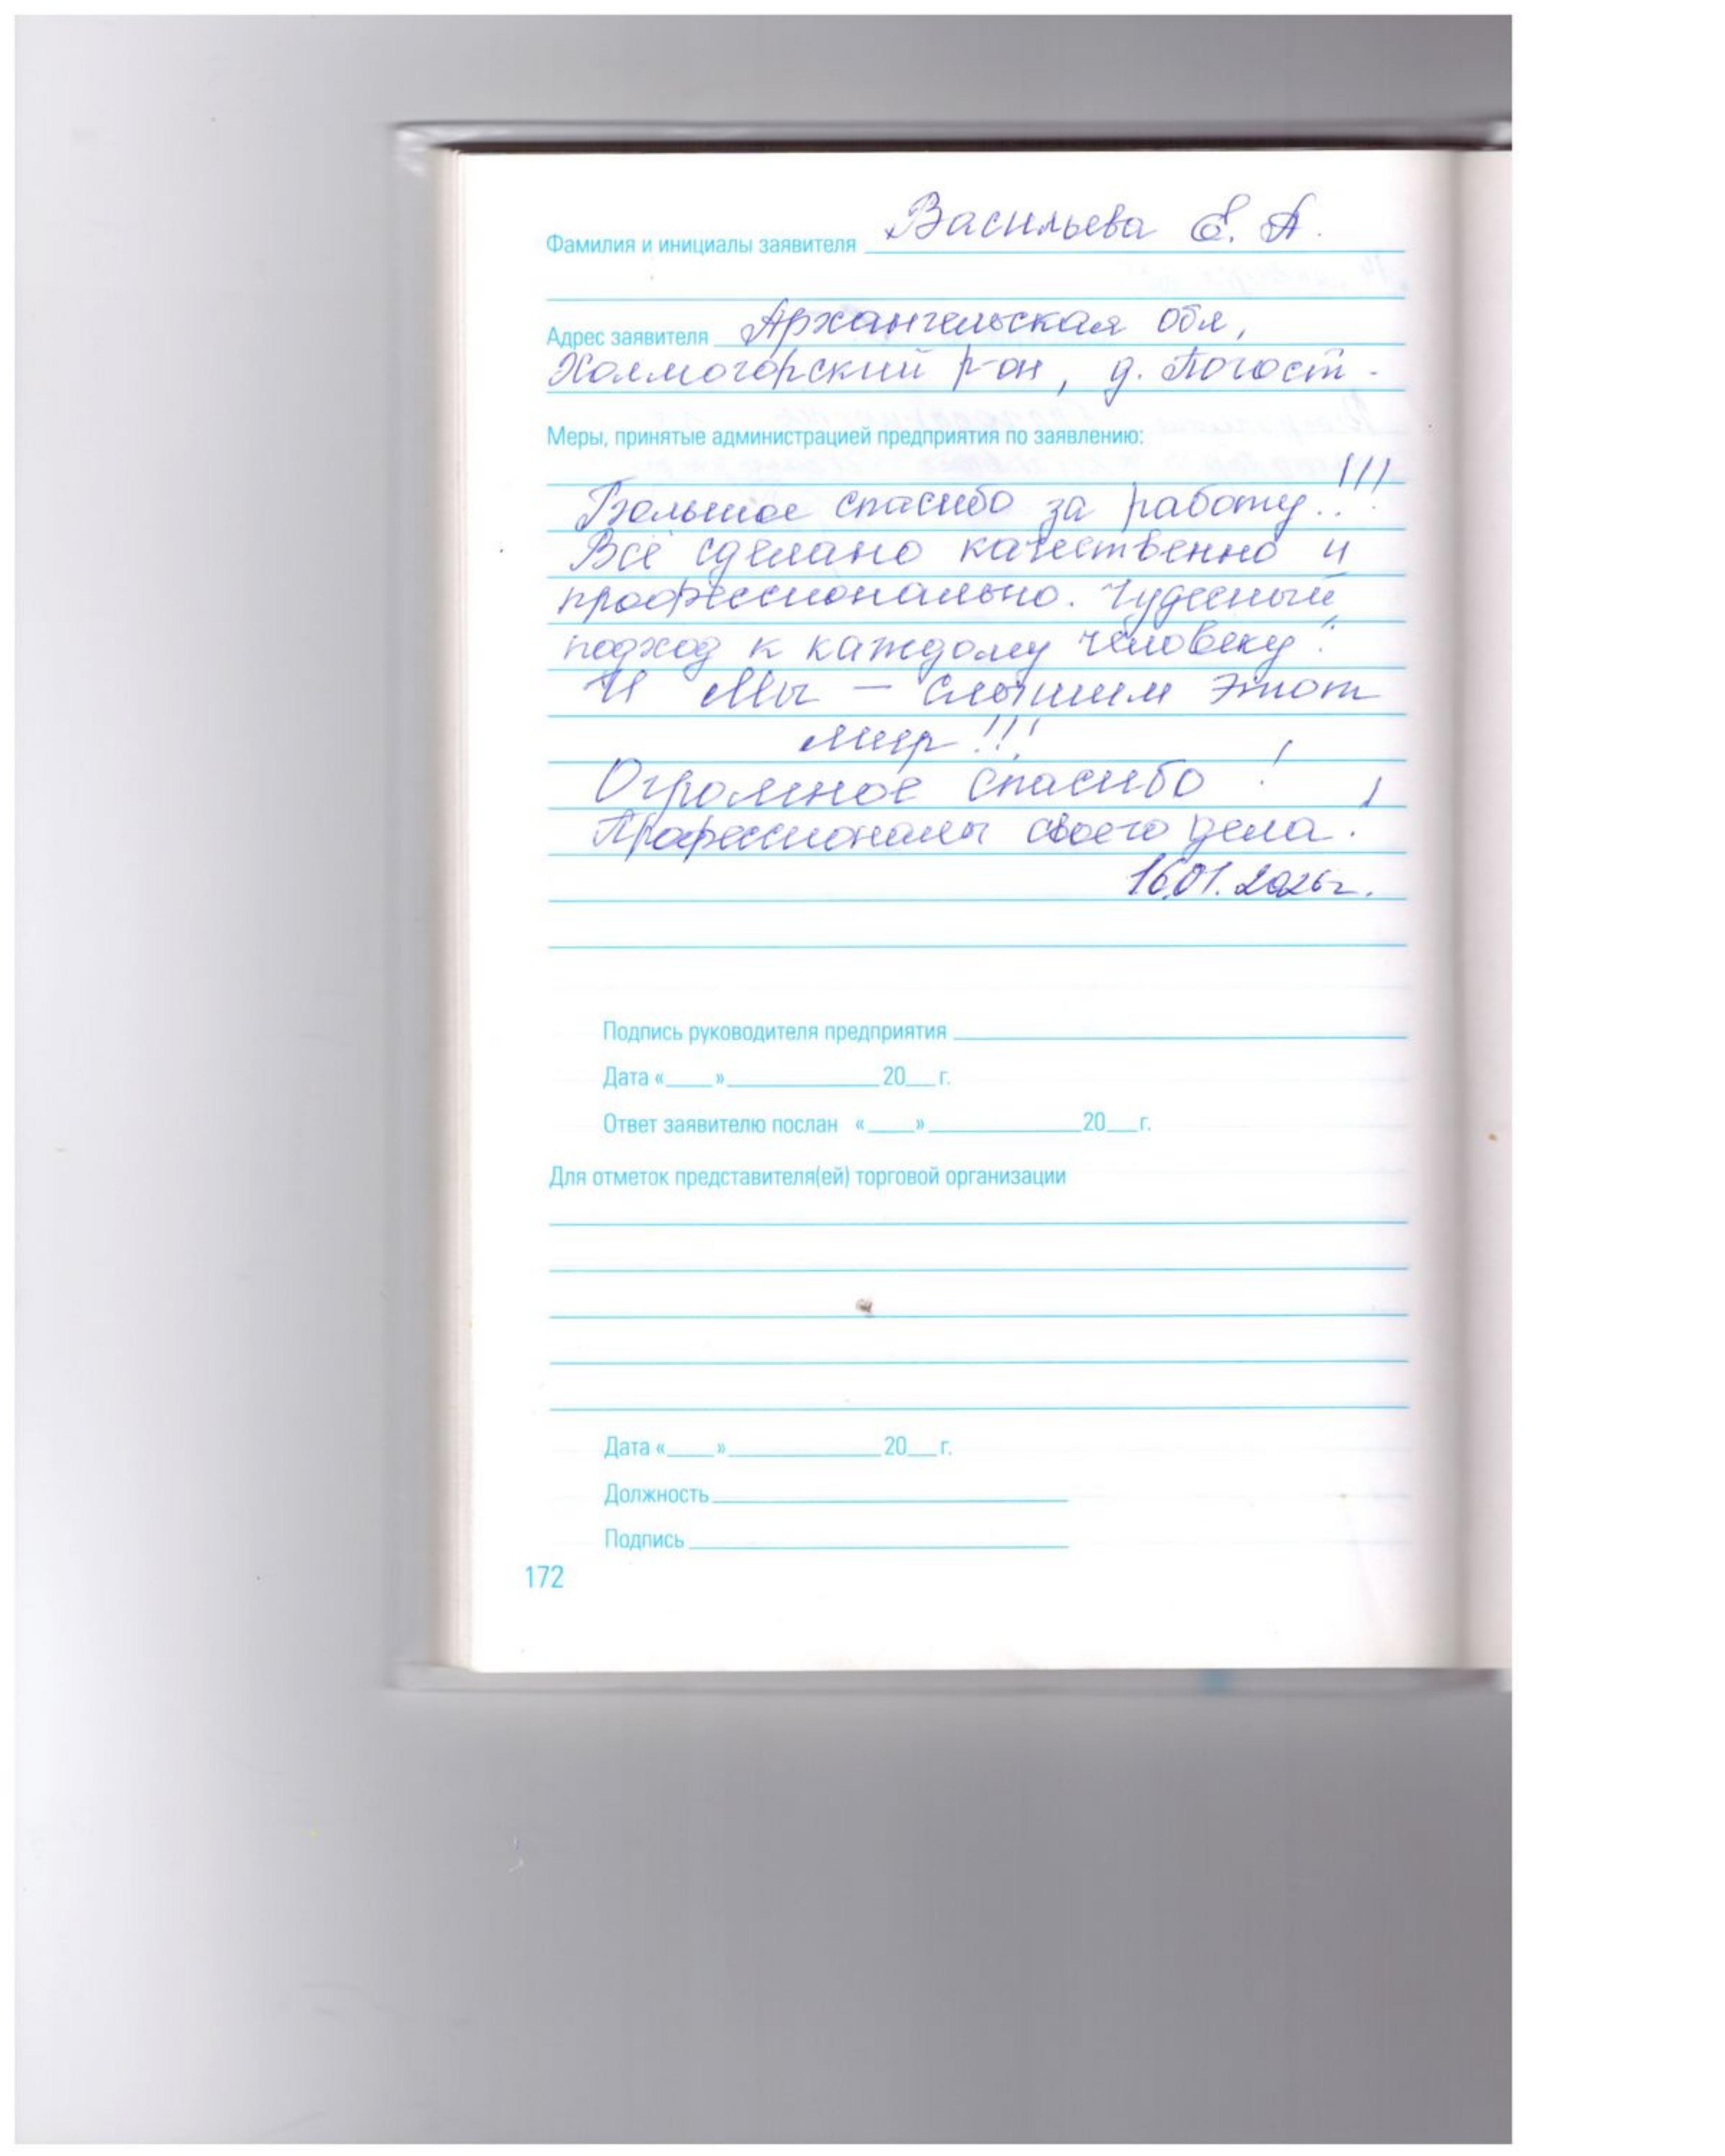 Фамилия и инициалы заявителя Васильева Е. А.
Адрес заявителя Архангельская обл,
Холмогорский р-он, д. Погост.
Меры, принятые администрацией предприятия по заявлению:
Большое спасибо за работу..!!!
Всё сделано качественно и
профессионально. Чудесный
подход к каждому человеку!
И Мы — слышим этот
мир!!!
Огромное спасибо!
Профессионалы своего дела!
16.01.2026г.
Подпись руководителя предприятия
Дата «____»____________20__г.
Ответ заявителю послан «____»____________20__г.
Для отметок представителя(ей) торговой организации
Дата «____»____________20__г.
Должность
Подпись
172